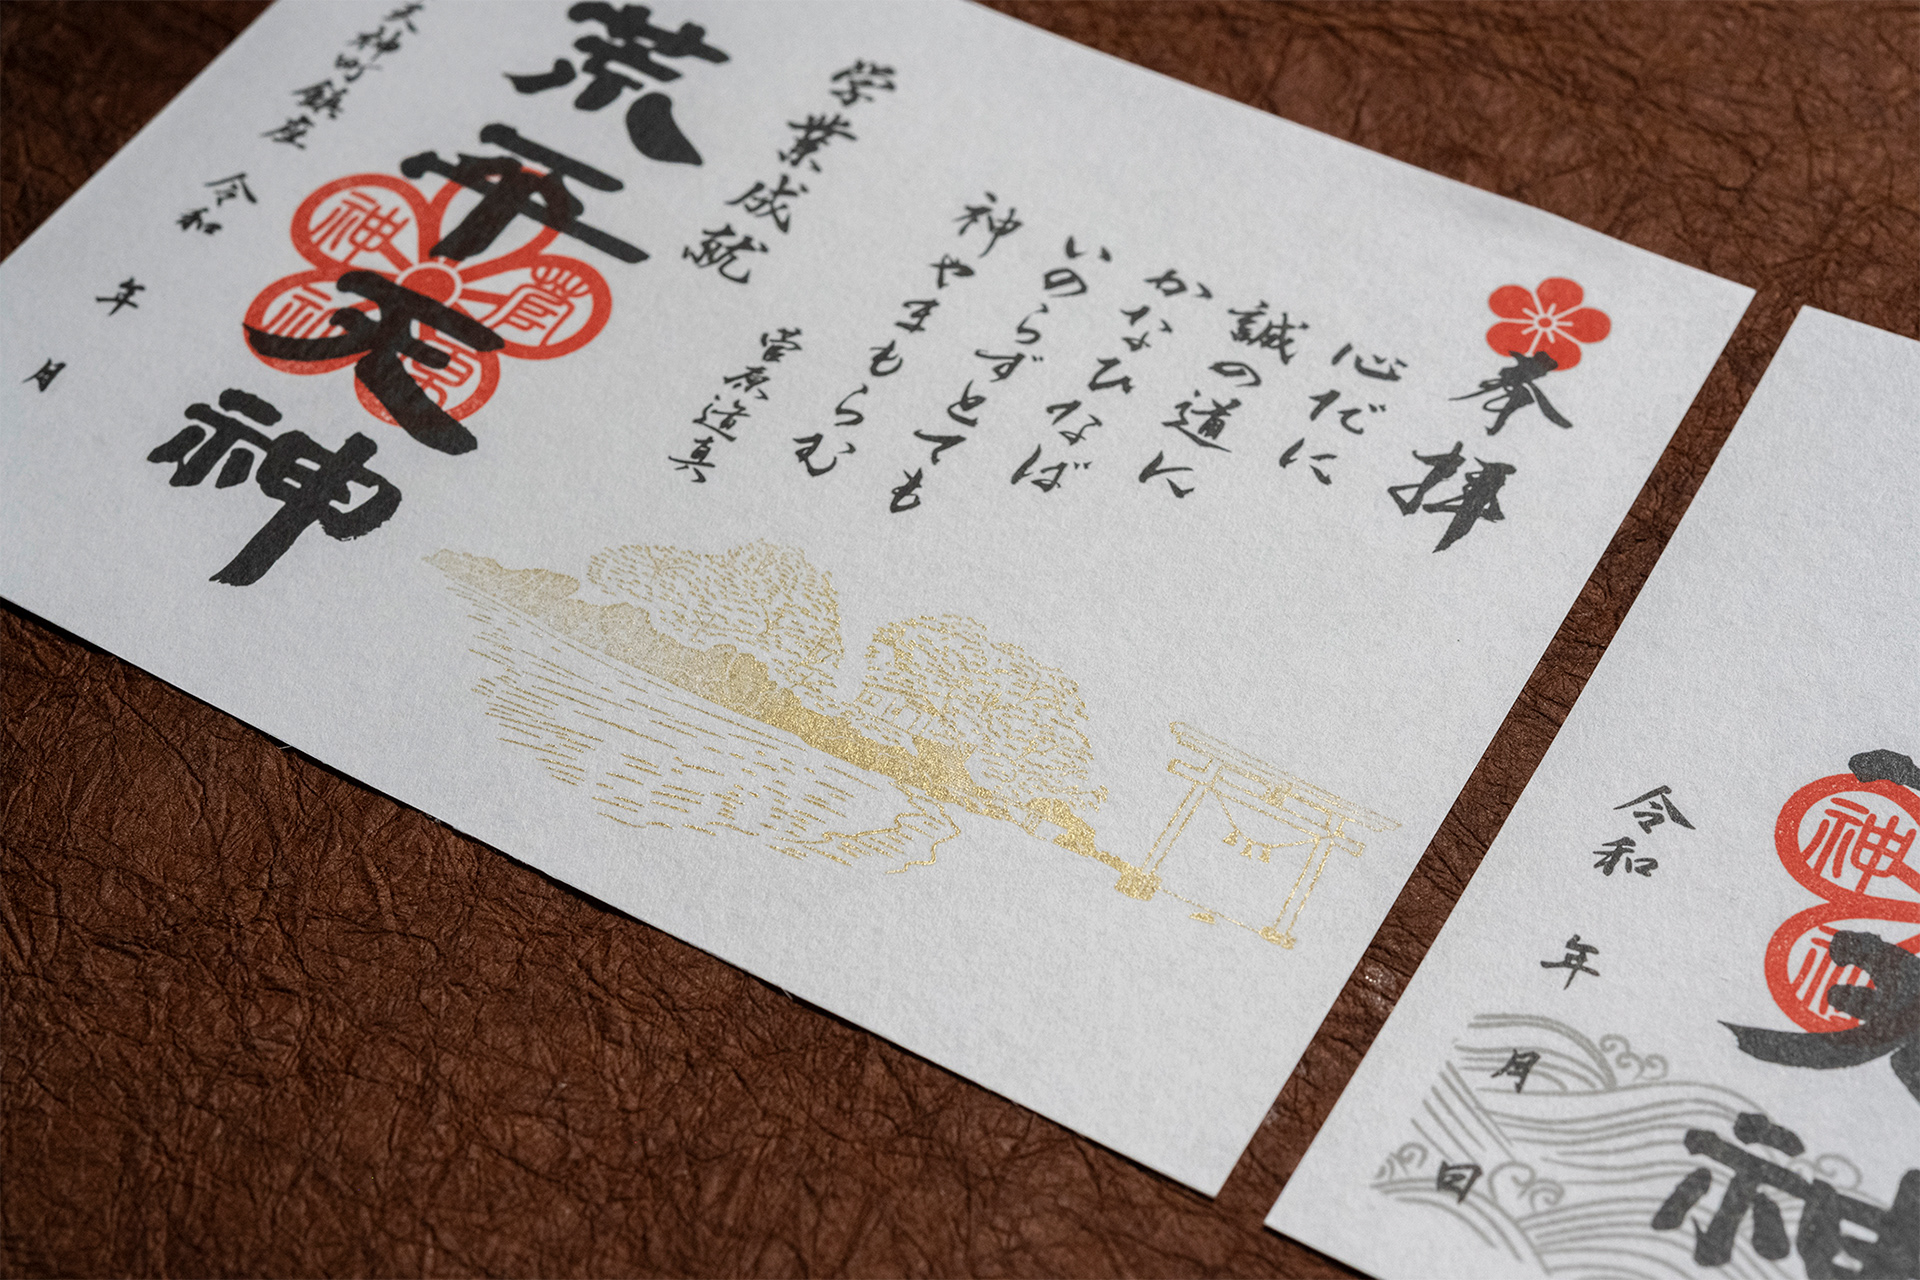 奉拝
心だに
誠の道に
かなひなば
いのらずとても
神やまもらむ
菅原道真
学業成就
荒平天神
天神町鎮座
令和
年
月
神
令和
年
月
日
神
天神